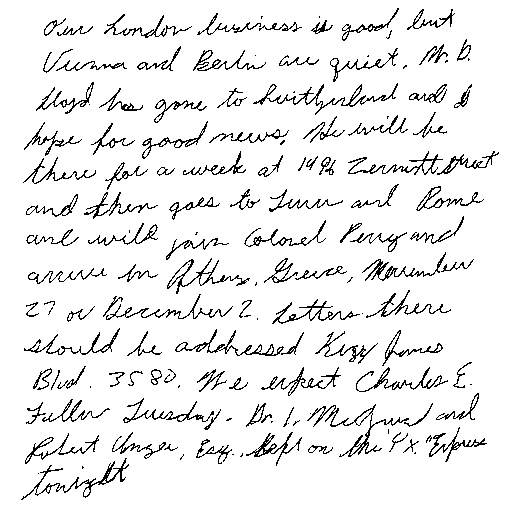 Our London business is good, but
Vienna and Berlin are quiet. Mr. D.
Lloyd has gone to Switzerland and I
hope for good news. He will be
there for a week at 1496 Zermott Street
and then goes to Turin and Rome
and will join Colonel Perry and
arrive in Athens, Greece, November
27 or December 2. Letters there
should be addressed King James
Blvd. 3580. We expect Charles E.
Fuller Tuesday. Dr. L. McQuaid and
Robert Unger, Esq. left on the Y.X. "Express
tonight